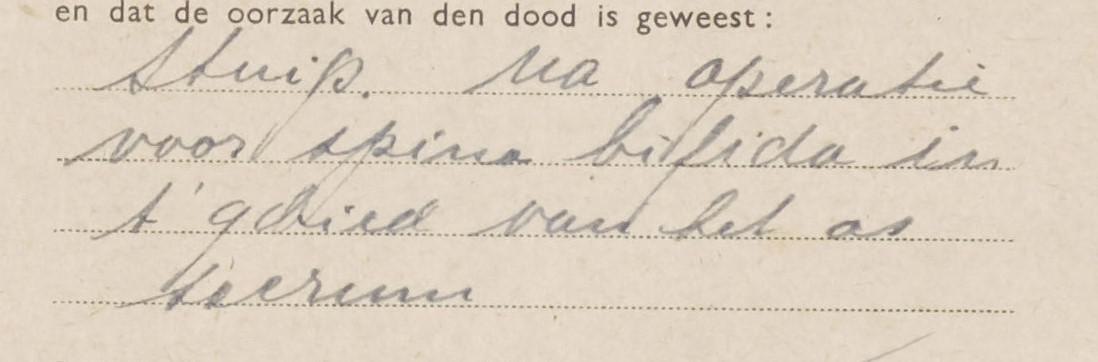 en dat de oorzaak van den dood is geweest :
Stuip. Na operatie
voor spina bifida in
t' gebied van het os
sacrum